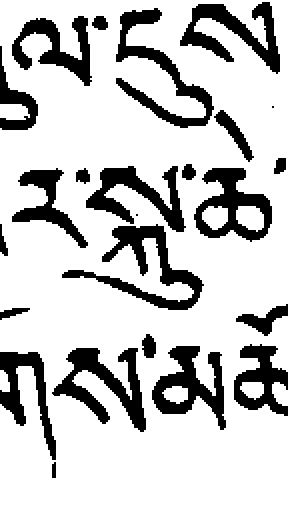 ལ་དུས
ར་སྐུ་ཚེ་
གས་མཚོ